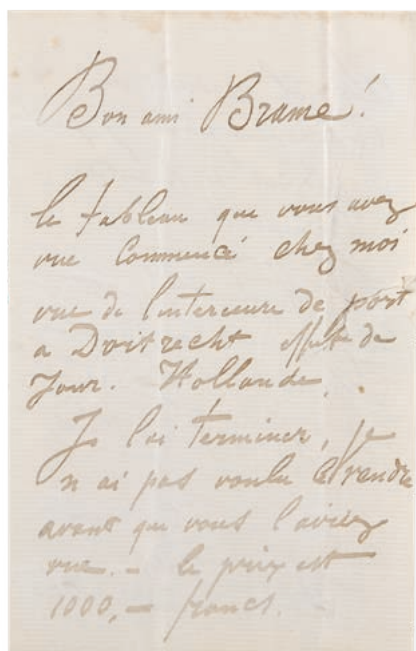 Bon ami Brame!
le tableau que vous avez
vue commencé chez moi
vue de l'interieure de port
a Doitrecht effet de
Jour. Hollande.
Je l'ai terminer, je
n ai pas voulu le vendre
avant que vous l'aviez
vue. – le prix est
1000,– francs.